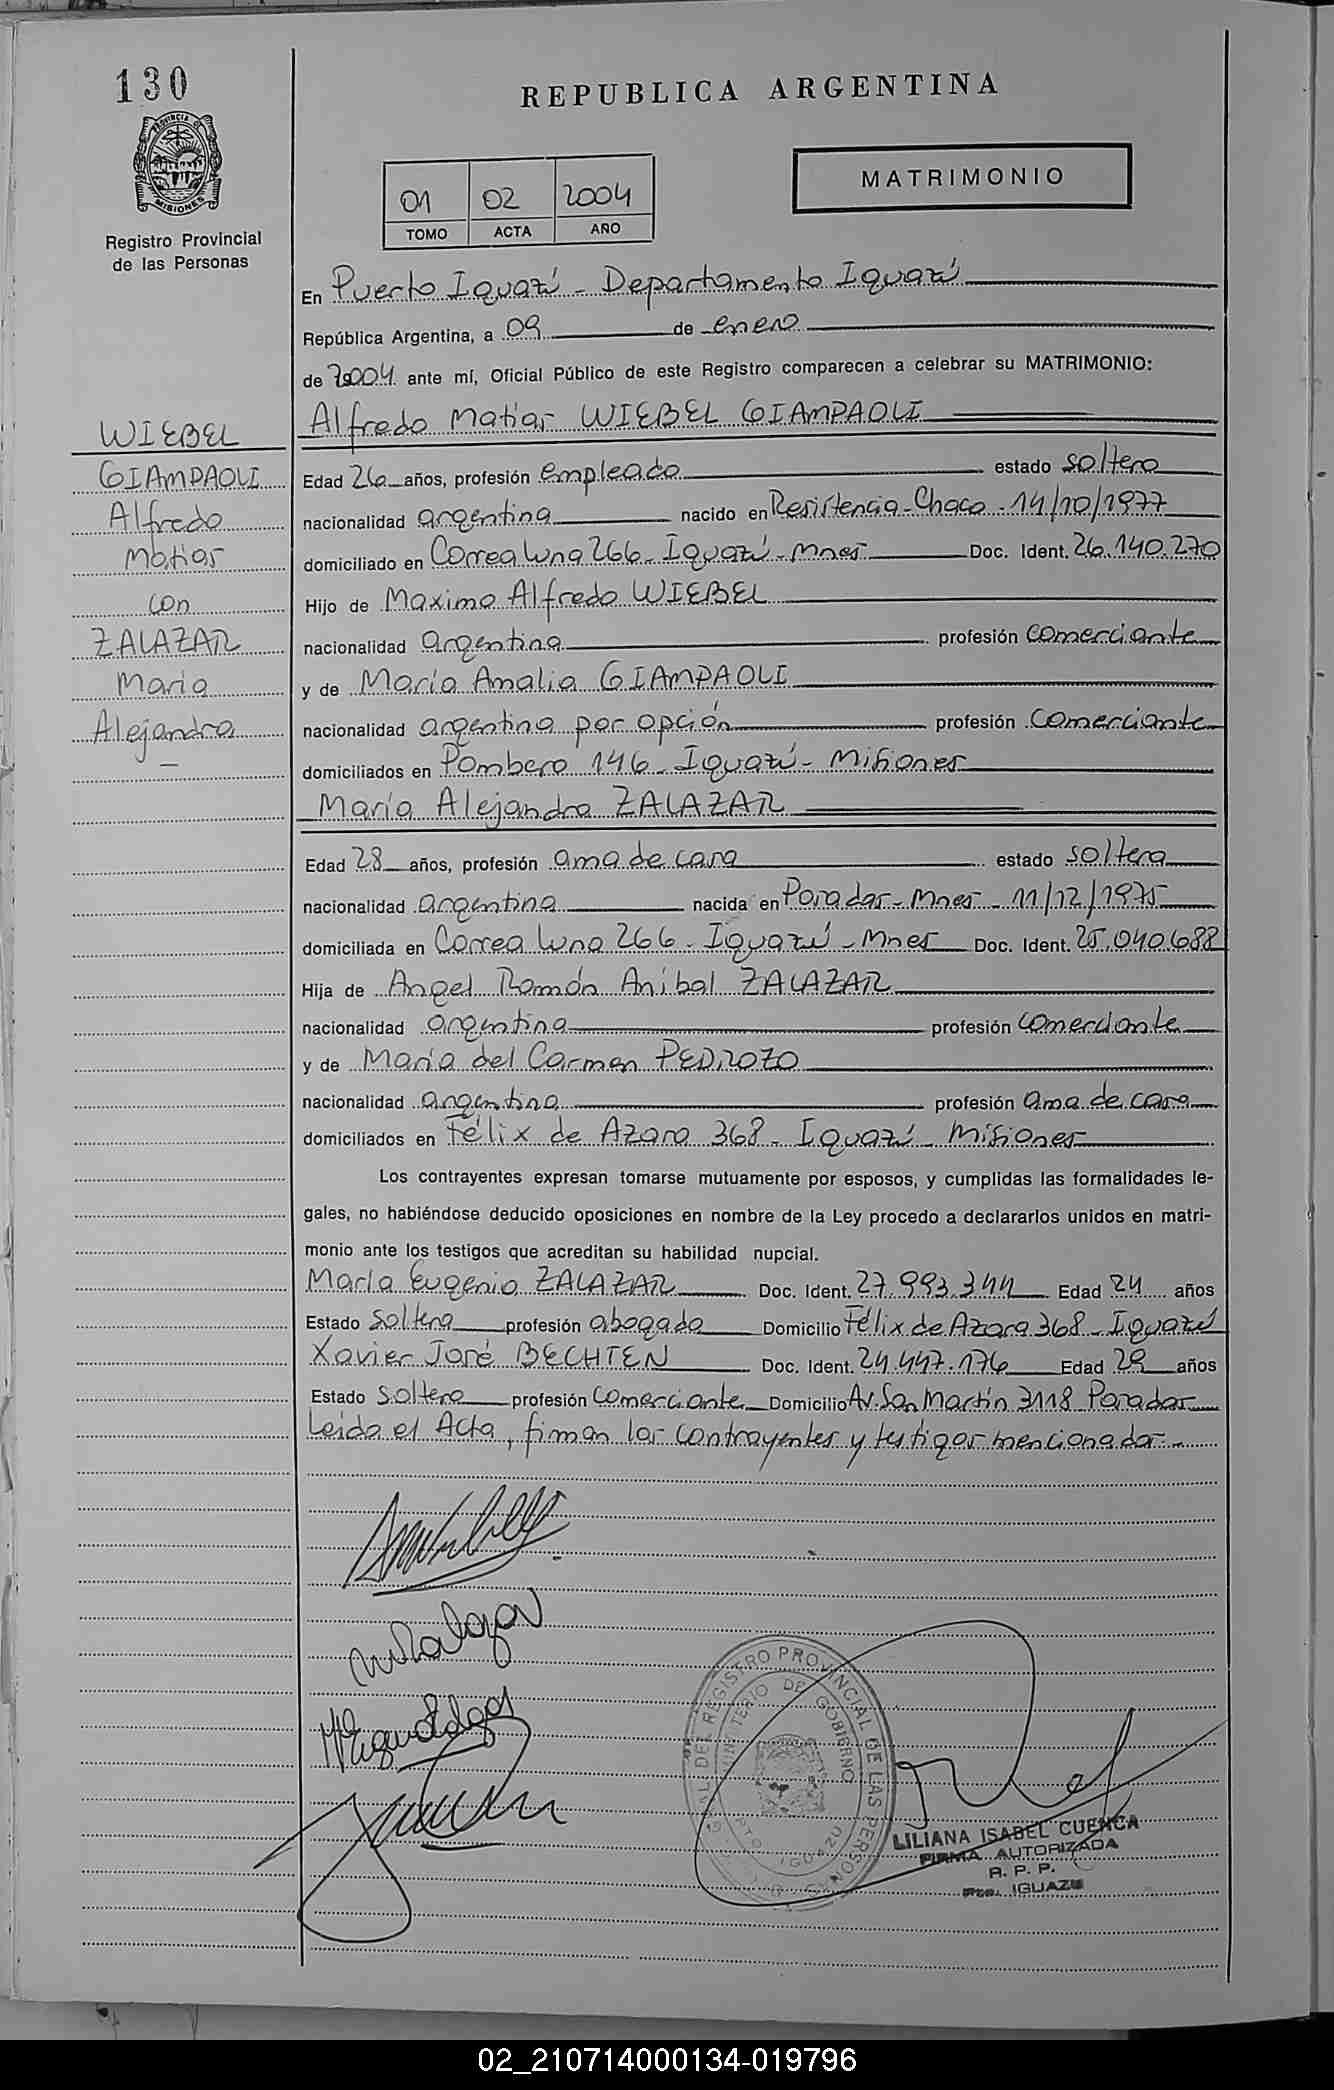 130
REPUBLICA ARGENTINA
PROVINCIA DE MISIONES
Registro Provincial
de las Personas
MATRIMONIO
01 02 2004
TOMO ACTA AÑO
En Puerto Iguazú - Departamento Iguazú
República Argentina, a 09 de enero
de 2004 ante mí, Oficial Público de este Registro comparecen a celebrar su MATRIMONIO:
Alfredo Matias WIEBEL GIAMPAOLI
WIEBEL
GIAMPAOLI
Alfredo
Matias
con
ZALAZAR
Maria
Alejandra
Edad 26 años, profesión empleado estado soltero
nacionalidad argentina nacido en Resistencia - Chaco - 14/10/1977
domiciliado en Correa Luna 266 - Iguazú - Mnes Doc. Ident. 26.140.270
Hijo de Maximo Alfredo WIEBEL
nacionalidad argentina profesión comerciante
y de María Amalia GIAMPAOLI
nacionalidad argentina por opción profesión comerciante
domiciliados en Pombero 146 - Iguazú - Misiones
María Alejandra ZALAZAR
Edad 28 años, profesión ama de casa estado soltera
nacionalidad argentina nacida en Posadas - Mnes - 11/12/1975
domiciliada en Correa Luna 266 - Iguazú - Mnes Doc. Ident. 25.040.688
Hija de Angel Ramón Anibal ZALAZAR
nacionalidad argentina profesión comerciante
y de María del Carmen PEDROZO
nacionalidad argentina profesión ama de casa
domiciliados en Félix de Azara 368 - Iguazú - Misiones
Los contrayentes expresan tomarse mutuamente por esposos, y cumplidas las formalidades le-
gales, no habiéndose deducido oposiciones en nombre de la Ley procedo a declararlos unidos en matri-
monio ante los testigos que acreditan su habilidad nupcial.
María Eugenia ZALAZAR Doc. Ident. 27.993.344 Edad 24 años
Estado soltera profesión abogada Domicilio Félix de Azara 368 - Iguazú
Xavier José BECHTEN Doc. Ident. 24.447.176 Edad 29 años
Estado soltero profesión comerciante Domicilio Av. San Martín 3118 Posadas
Leída el Acta, firman los contrayentes y testigos mencionados -
REGISTRO PROVINCIAL DE LAS PERSONAS
MINISTERIO DE GOBIERNO
PTO. IGUAZU
LILIANA ISABEL CUENCA
FIRMA AUTORIZADA
R. P. P.
Pto. IGUAZU
02_210714000134-019796